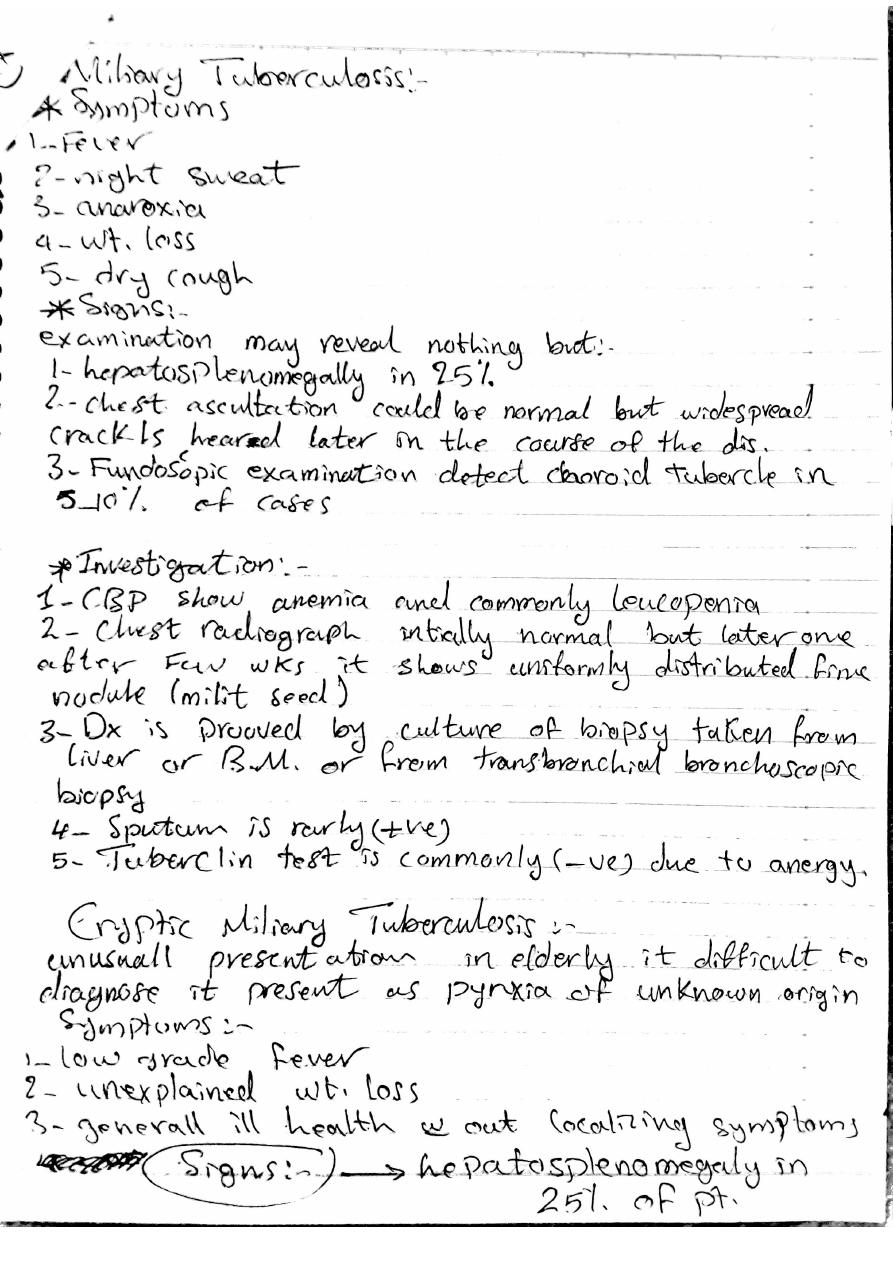 Miliary Tuberculosis:-
* Symptoms
1- Fever
2- night sweat
3- anaroxia
4- wt. loss
5- dry cough
* Signs:-
examination may reveal nothing but:-
1- hepatosplenomegally in 25%
2- chest ascultation could be normal but widespread
crackls heared later in the course of the dis.
3- Fundosopic examination detect choroid tubercle in
5-10% of cases
* Investigation:-
1- CBP show anemia and commonly leucopenia
2- Chest radiograph intially normal but later one
after Few wks it shows uniformly distributed fine
nodule (milit seed)
3- Dx is prooved by culture of biopsy taken from
liver or B.M. or from transbronchial bronchoscopic
biopsy
4- Sputum is rarly (+ve)
5- Tuberclin test is commonly (-ve) due to anergy.
Cryptic Miliary Tuberculosis:-
unusuall presentation in elderly it difficult to
diagnose it present as pyrxia of unknown origin
Symptoms:-
1- low grade fever
2- unexplained wt. loss
3- generall ill health w out localizing symptoms
Signs:- → hepatosplenomegaly in
25% of pt.